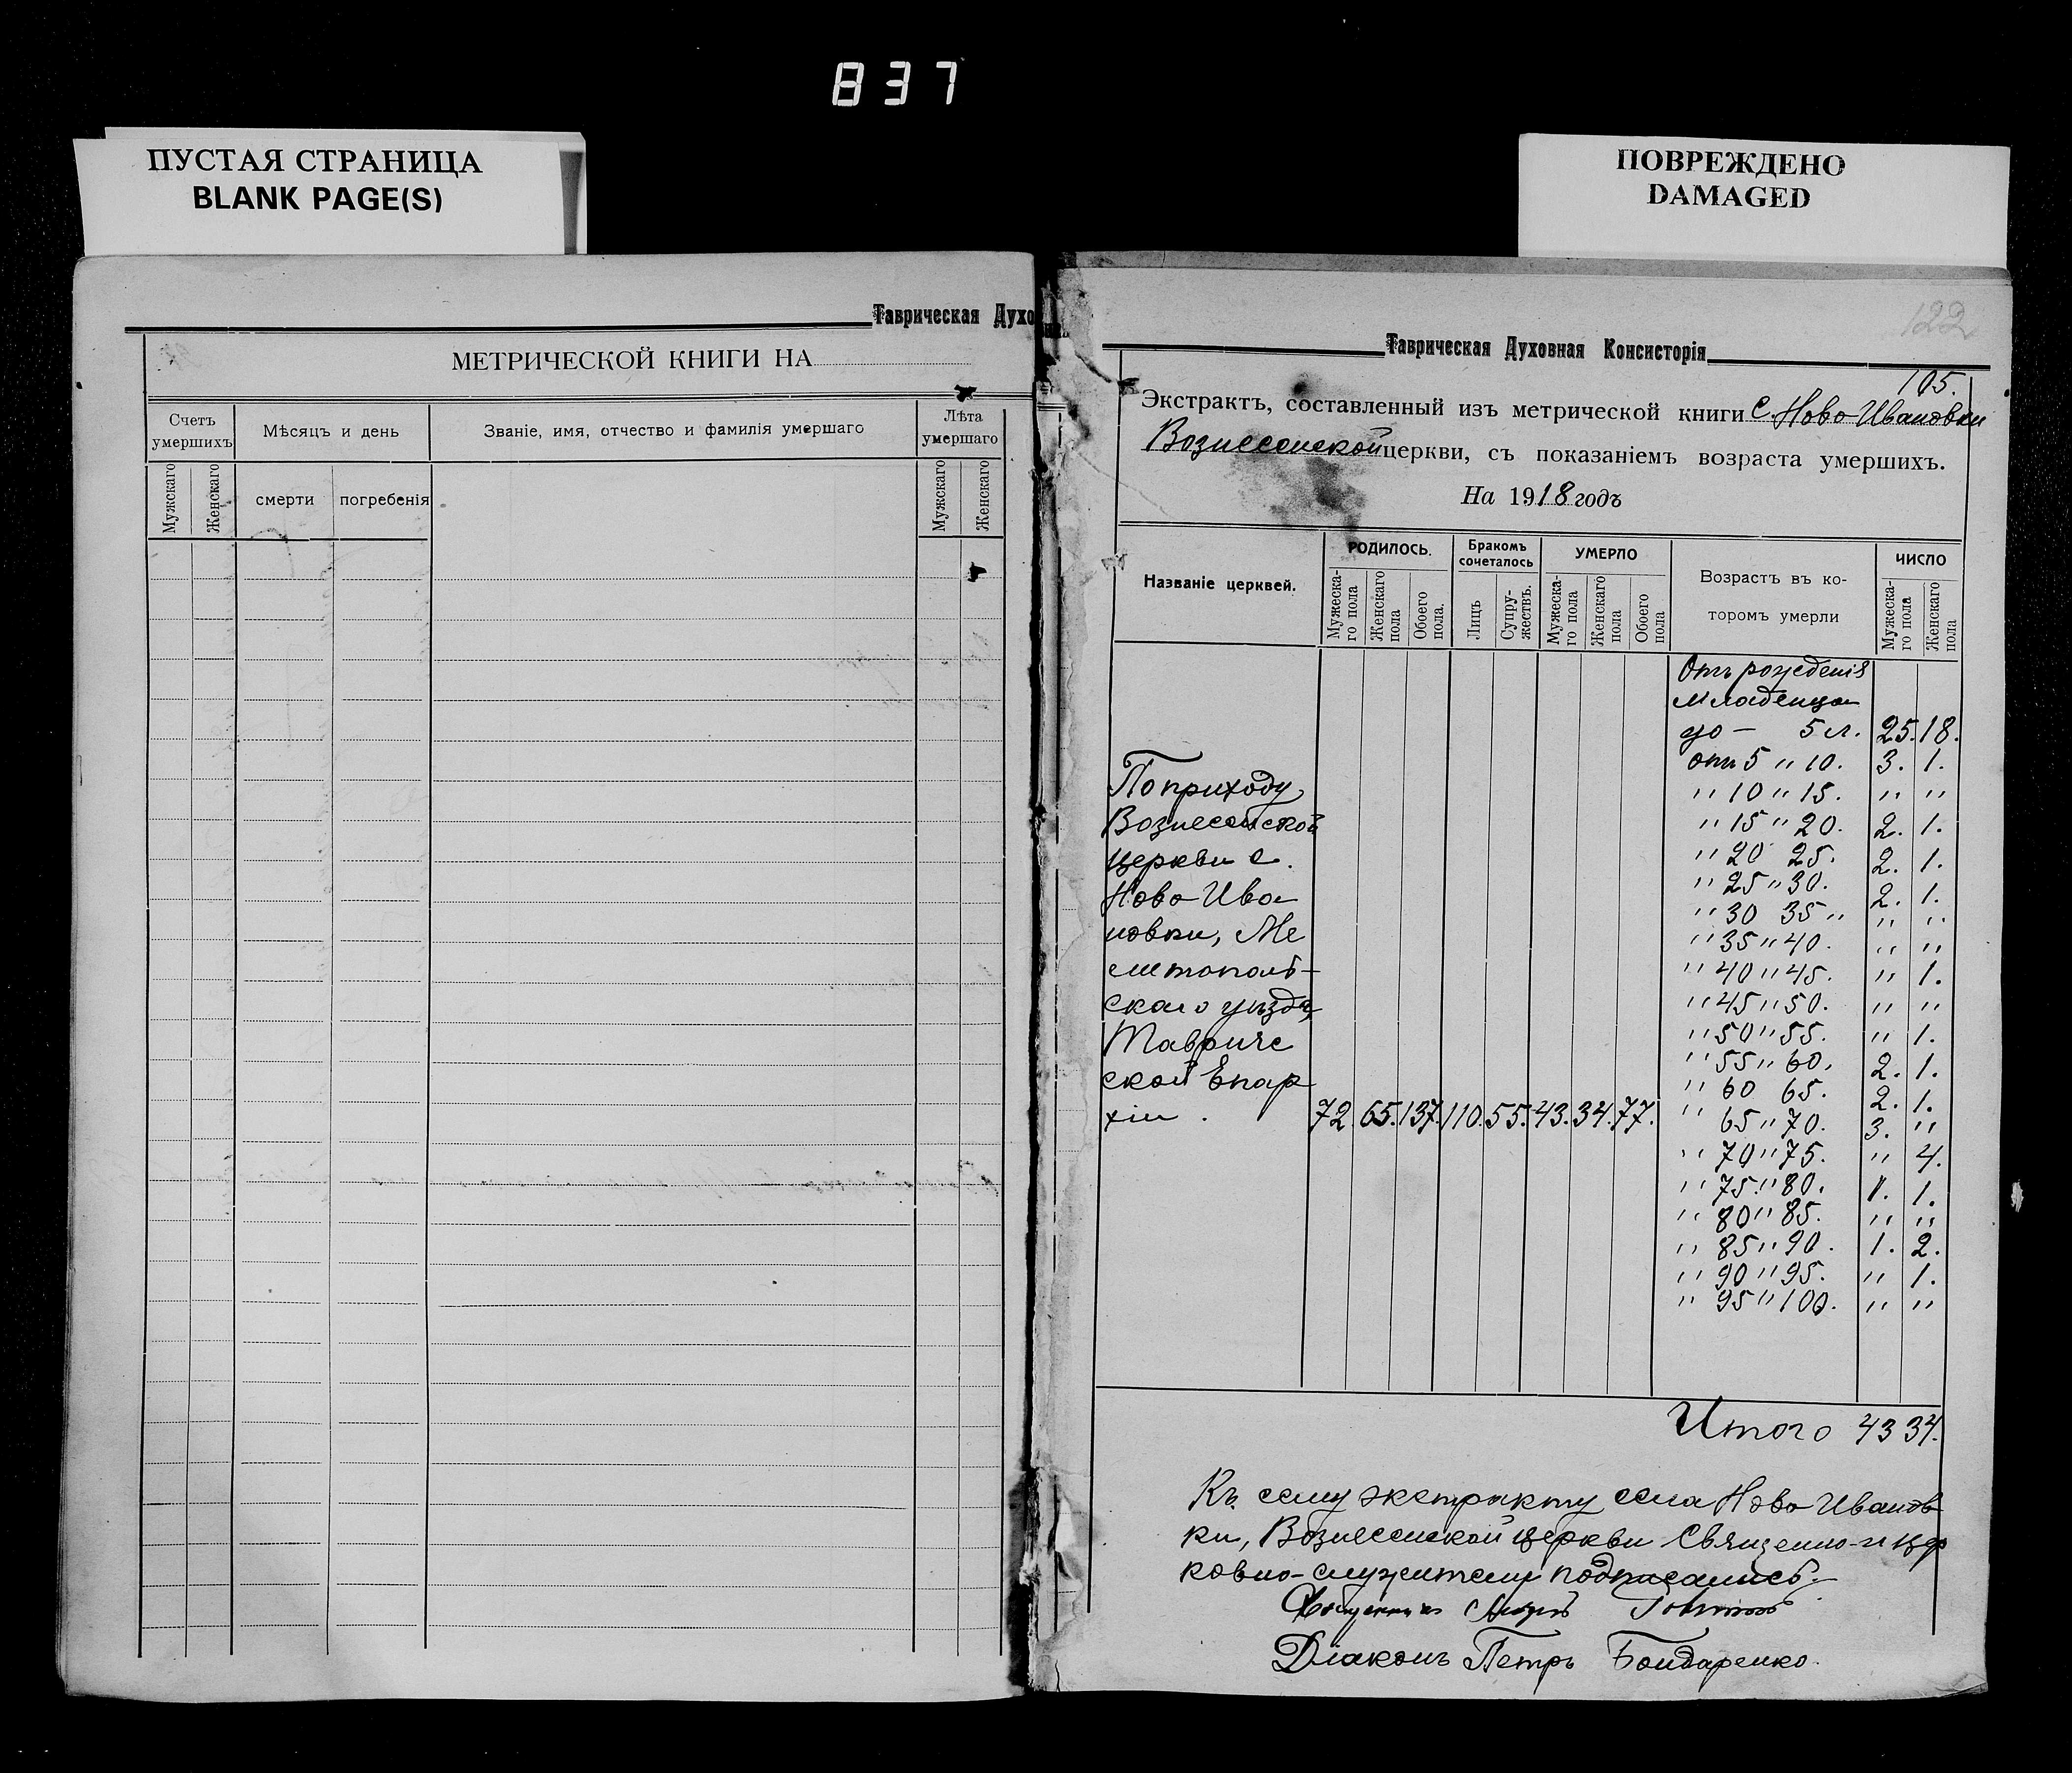 837
ПУСТАЯ СТРАНИЦА
BLANK PAGE(S)
ПОВРЕЖДЕНО
DAMAGED
Таврическая Духо
МЕТРИЧЕСКОЙ КНИГИ НА
Счетъ умершихъ
Мѣсяцъ и день
Званіе, имя, отчество и фамилія умершаго
Лѣта умершаго
Мужскаго
Женскаго
смерти
погребенія
Мужскаго
Женскаго
122
Таврическая Духовная Консисторія
105.
Экстрактъ, составленный изъ метрической книги с. Ново Ивановки
Вознесенской церкви, съ показаніемъ возраста умершихъ.
На 1918 годъ
Названіе церквей.
РОДИЛОСЬ.
Бракомъ сочеталось
УМЕРЛО
Возрастъ въ ко-
торомъ умерли
ЧИСЛО
Мужеска-го пола
Женскаго пола
Обоего пола.
Лицъ
Супру-жествъ.
Мужеска-го пола
Женскаго пола
Обоего пола
Мужеска-го пола
Женскаго пола
Отъ рожденія
младенца
до — 5 л. 25. 18.
отъ 5 " 10. 3. 1.
" 10 " 15. " "
" 15 " 20. 2. 1.
" 20 25. 2. 1.
" 25 " 30. 2. 1.
" 30 35 " " "
" 35 " 40. " "
" 40 " 45. " 1.
" 45 " 50. " "
" 50 " 55. " 1.
" 55 " 60. 2. 1.
" 60 65. 2. 1.
" 65 " 70. 3. "
" 70 " 75. " 4.
" 75 " 80. 1. 1.
" 80 " 85. " "
" 85 " 90. 1. 2.
" 90 " 95. " 1.
" 95 " 100. " "
По приходу
Вознесенской
церкви с.
Ново Ива
новки, Ме
литополь-
скаго уѣзда,
Тавриче
ской Епар
хіи. 72. 65. 137. 110. 55. 43. 34. 77.
Итого 43 34.
Къ сему экстракту села Ново Иванов
ки, Вознесенской церкви Священно-и цер
ковно-служители подписались:
Священникъ
Діаконъ Петръ Бондаренко.